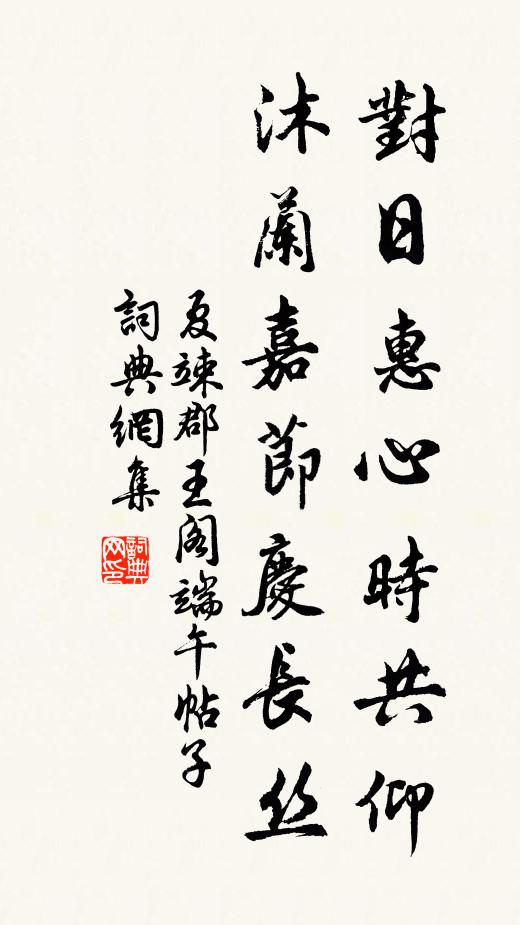 對日惠心時共仰
沐蘭嘉節慶長丝
夏竦郡王阁端午帖子
詞典網集
詞典網印